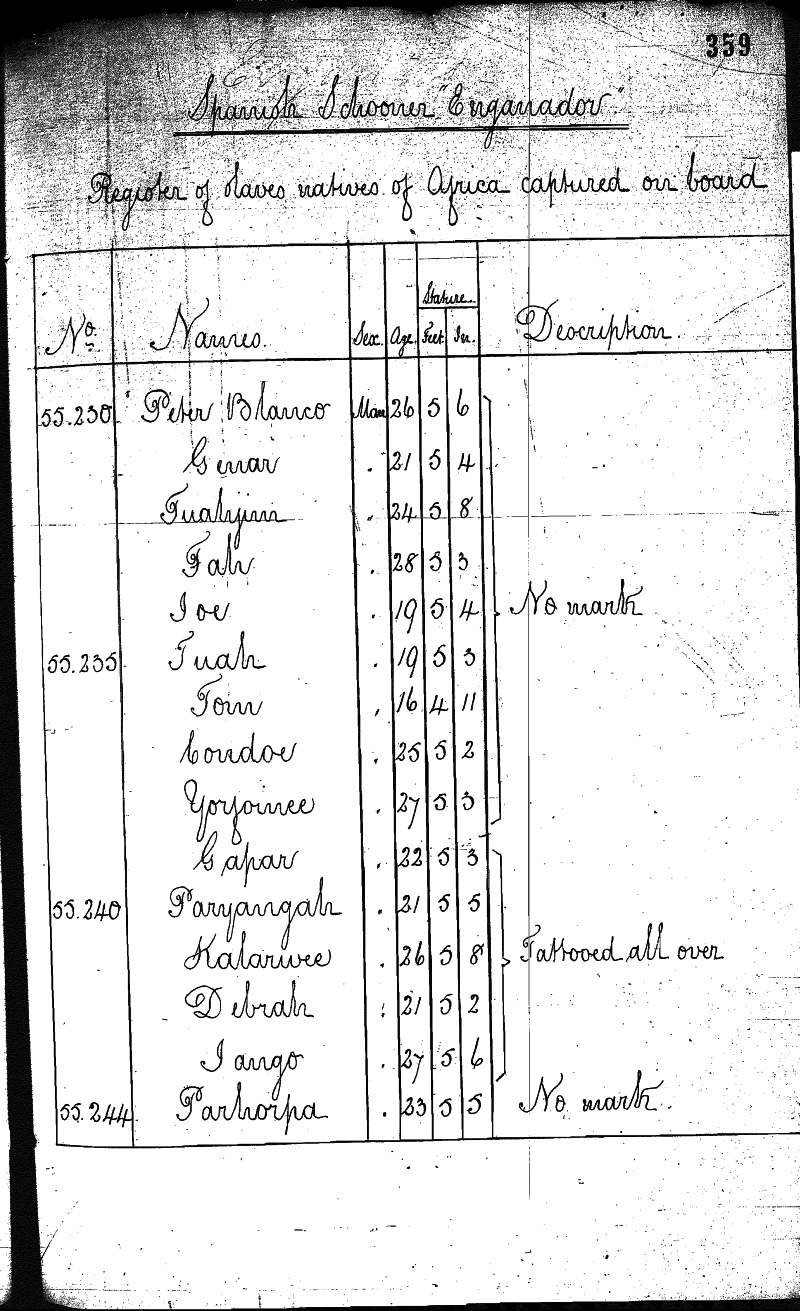 359
Spanish Schooner "Enganador"
Register of slaves natives of Africa captured on board
Stature.
No. Names. Sex. Age. Feet In. Description.
55.230 Peter Blanco Man 26 5 6
Genar . 21 5 4
Fuahjim . 24 5 8
Fah . 28 5 3
Joe . 19 5 4 No mark
55.235 Tuah . 19 5 3
Tom . 16 4 11
Condoe . 25 5 2
Yorjoinee . 27 5 3
Gapar . 22 5 3
55.240 Paryangah . 21 5 5
Kalarwee . 26 5 8 Tattooed all over
Debrah . 21 5 2
Jango . 27 5 6
55.244 Parhorpa . 23 5 5 No mark.